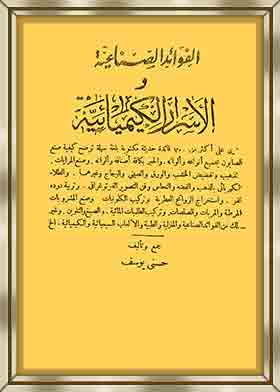 الفوائد الصناعية
و
الأسرار الكيميائية
على أكثر من فائدة حديثة مكتوبة بلغة سهلة توضح كيفية صنع
الصابون بجميع أنواعه وألوانه . والحبر بكافة أصنافه وألوانه . وصنع المرايات .
تذهيب وتفضيض الخشب والورق والصيني والزجاج وغيرها . والطلاء
الكهربائي بالذهب والفضة والنحاس وفن التصوير الفوتوغرافي . وتربية دودة
القز . واستخراج الروائح العطرية وتركيب الكلونيات وصنع المشروبات
المرطبة والمربات والصلصات . وتركيب الطلبيات المائية . والصبغ والتلوين . وغير
ذلك من الفوائد الصناعية والمنزلية والطبية والألعاب السيميائية والكيميائية . الخ
جمع وتأليف
حسني يوسف